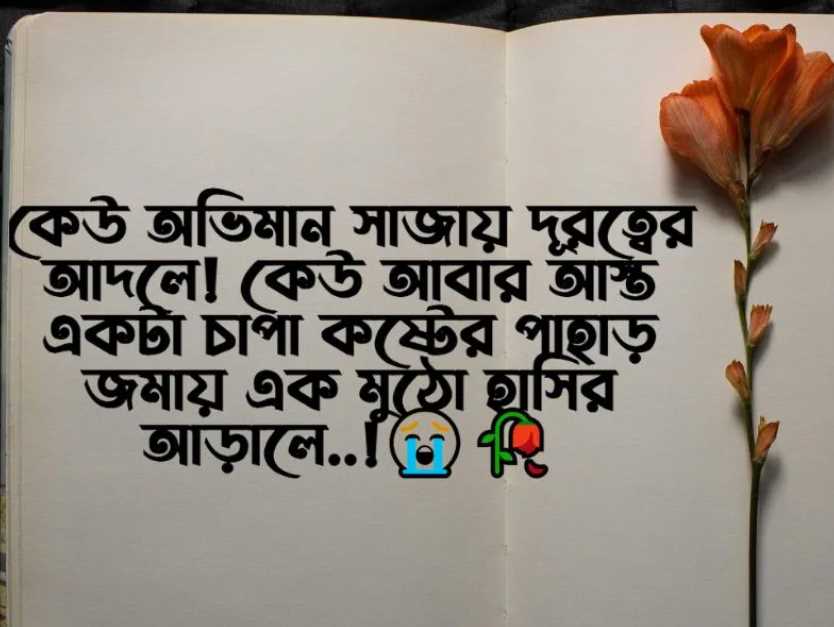 কেউ অভিমান সাজায় দূরত্বের
আদলে! কেউ আবার আস্ত
একটা চাপা কষ্টের পাহাড়
জমায় এক মুঠো হাসির
আড়ালে..!😭🥀